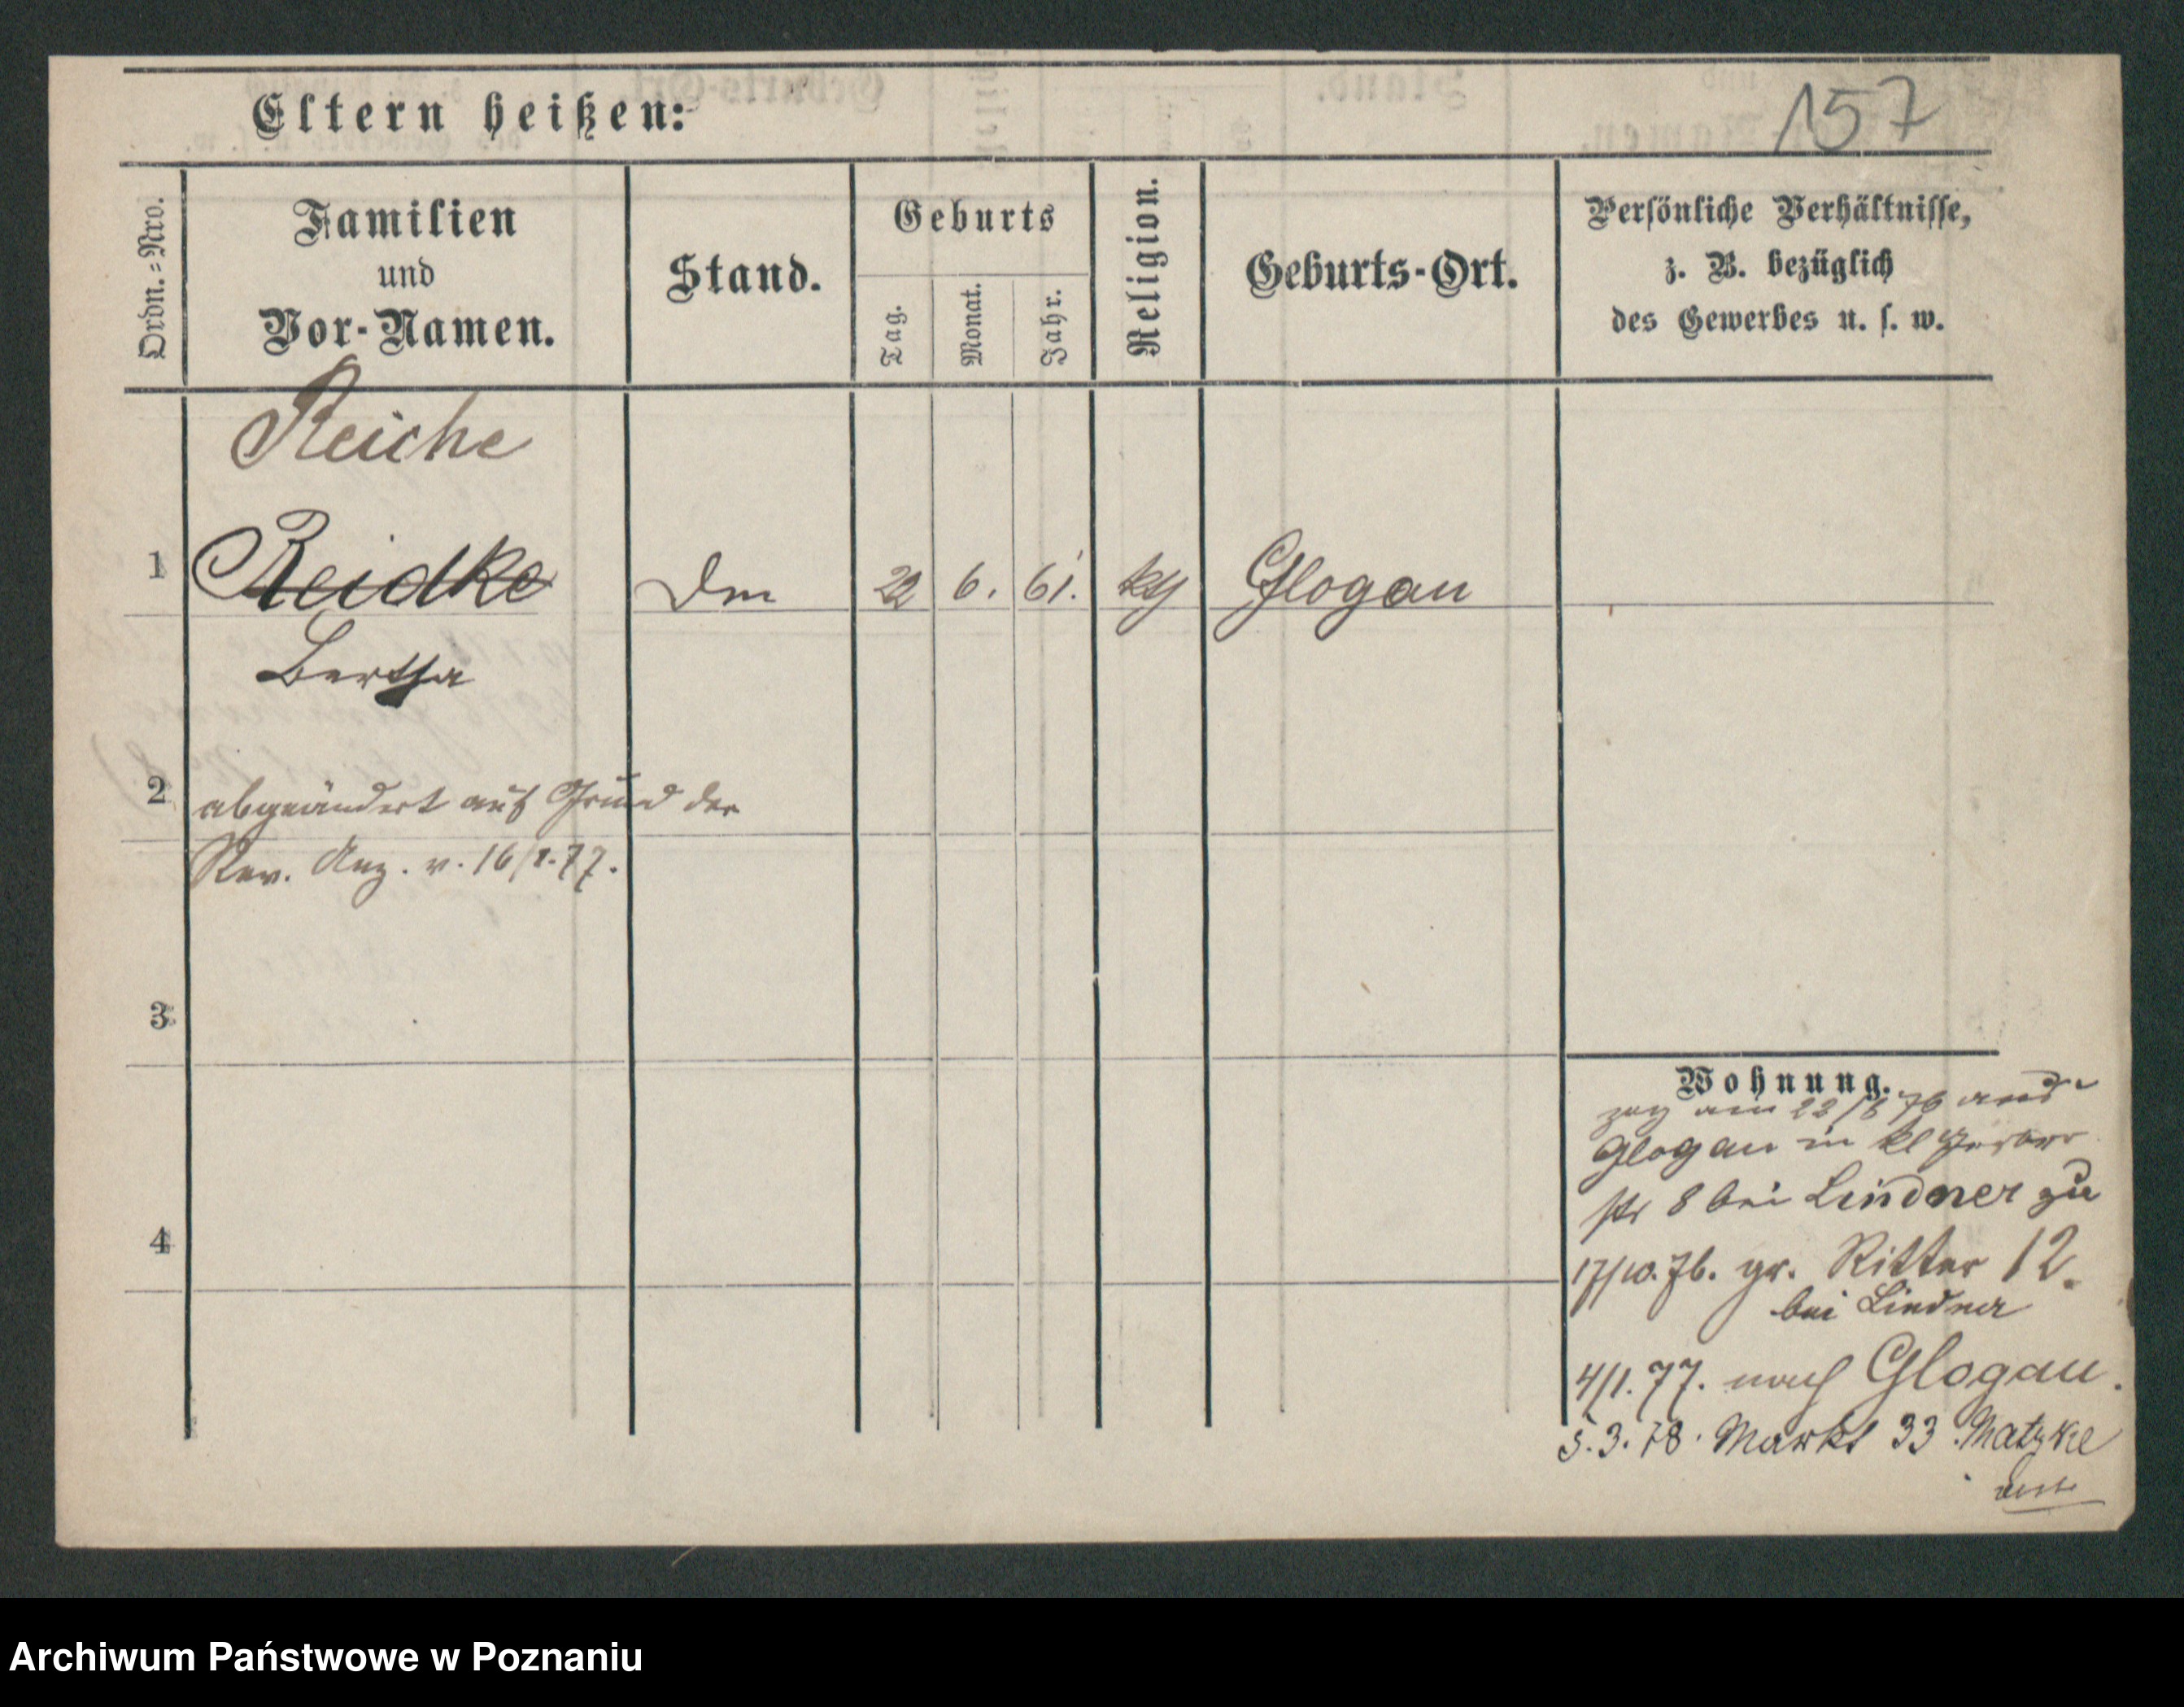 157
Eltern heißen:
Ordn.=Nro.
Familien
und
Vor-Namen.
Stand.
Geburts
Tag.
Monat.
Jahr.
Religion.
Geburts-Ort.
Persönliche Verhältnisse,
z. B. bezüglich
des Gewerbes u. s. w.
Reiche
1 Reidke 22 6. 61. Glogau
Bertha
2 abgeändert auf Grund der
Rev. Anz. v. 16/1.77.
3
4
Wohnung.
zog am 22/ 76 aus
Glogau in kl Gerber
str 8 bei Lindner zu
17/10.76. gr. Ritter 12.
bei Lindner
4/1.77. nach Glogau.
5.3.78. Markt 33 Matzke
Archiwum Państwowe w Poznaniu